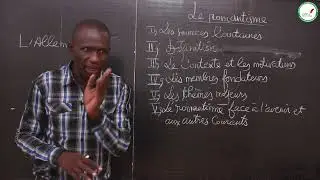 Le romantisme
L'Allem
I) Les sources lointaines
II)
III) Le Contexte et les motivations
IV) Les membres fondateurs
V) Les thèmes majeurs
V) Le romantisme face à l'avenir et
aux autres Courants